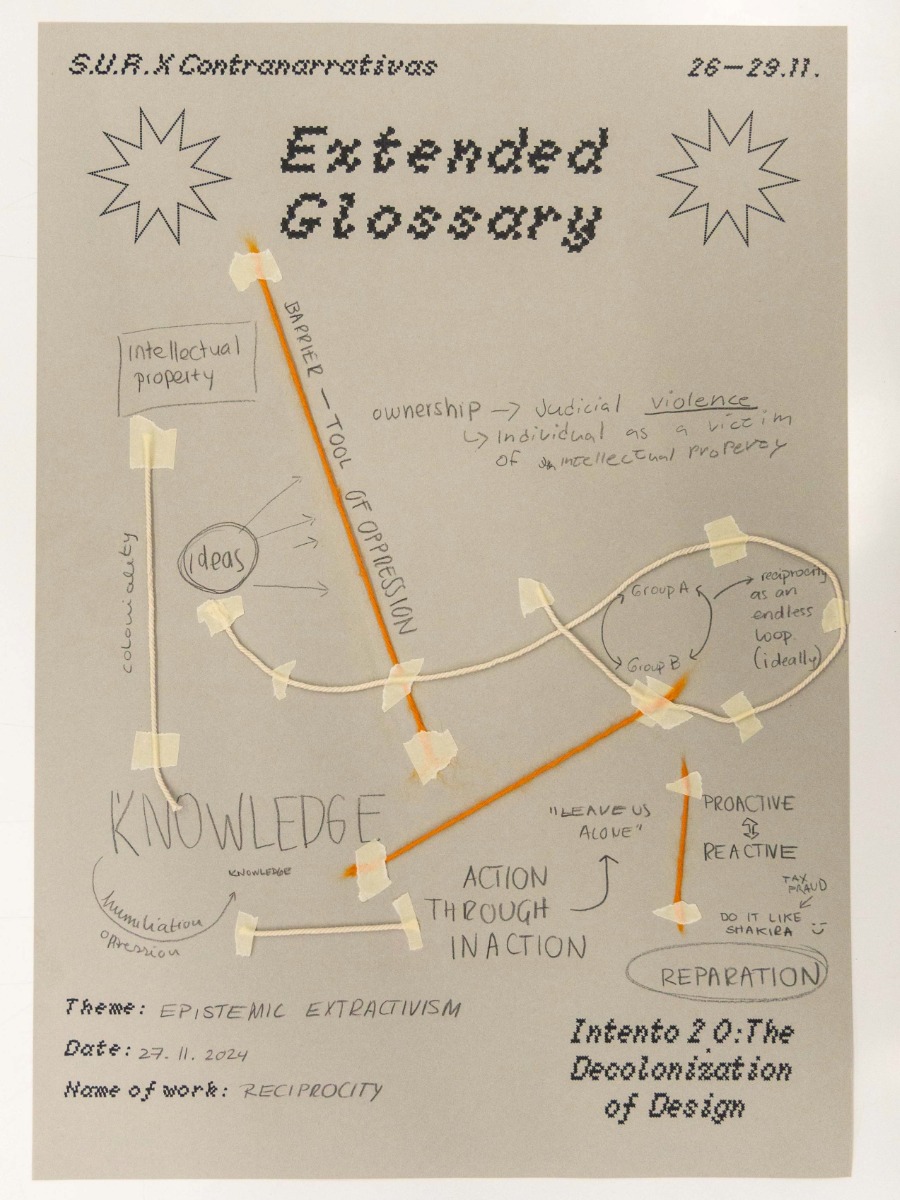 S.U.R.X Contranarrativas
26—29.11.
Extended
Glossary
Intellectual
property
BARRIER — TOOL OF OPPRESSION
ownership → Judicial violence
↳ Individual as a victim
of intellectual property
ideas
coloniality
Group A
Group B
reciprocity
as an
endless
loop.
(ideally)
KNOWLEDGE
KNOWLEDGE
humiliation
opression
"LEAVE US
ALONE"
ACTION
THROUGH
INACTION
PROACTIVE
REACTIVE
TAX
FRAUD
DO IT LIKE
SHAKIRA
REPARATION
Theme: EPISTEMIC EXTRACTIVISM
Date: 27. 11. 2024
Name of work: RECIPROCITY
Intento 2.0:The
Decolonization
of Design